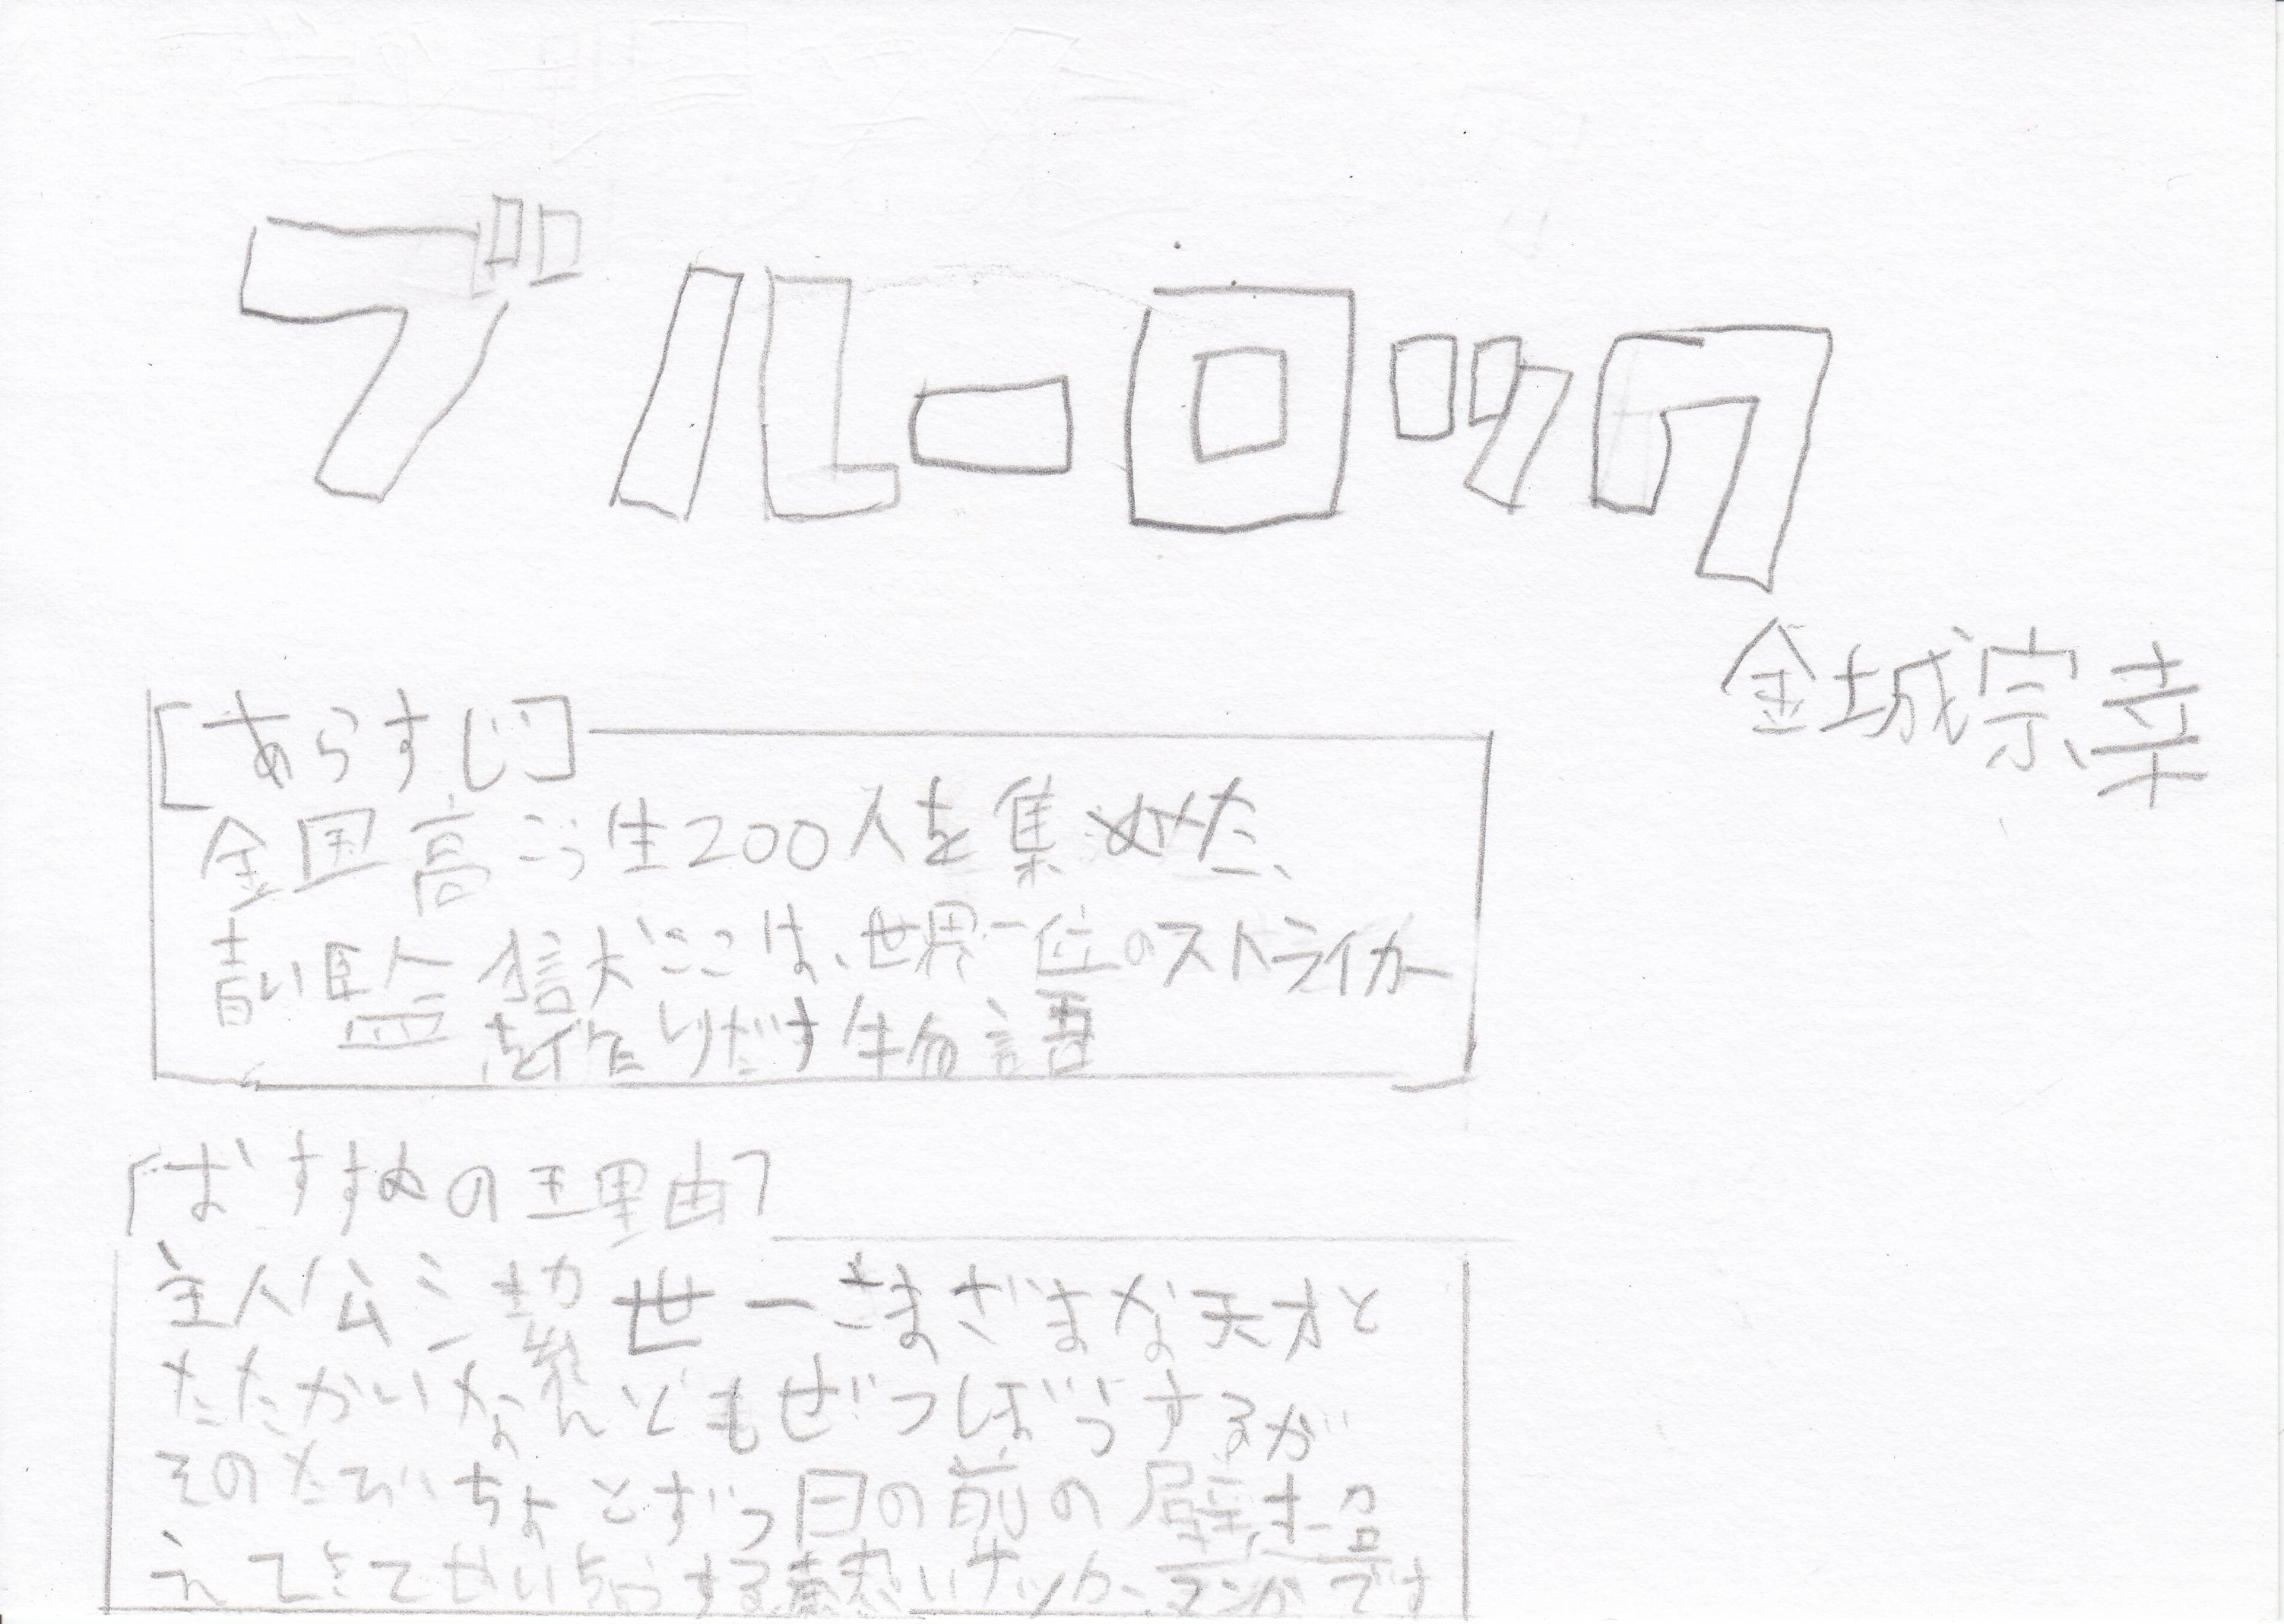 ブルーロック
金城宗幸
[あらすじ]
全国高こう生200人を集めた、
青い監獄ここは、世界一位のストライカー
を作りだす物語
「おすすめの理由」
主人公 世一さまざまな天才と
たたかいなんどもぜつぼうするが
そのたびちょとずつ目の前の壁を超
えてきてせいちょうする熱いサッカーマンガです